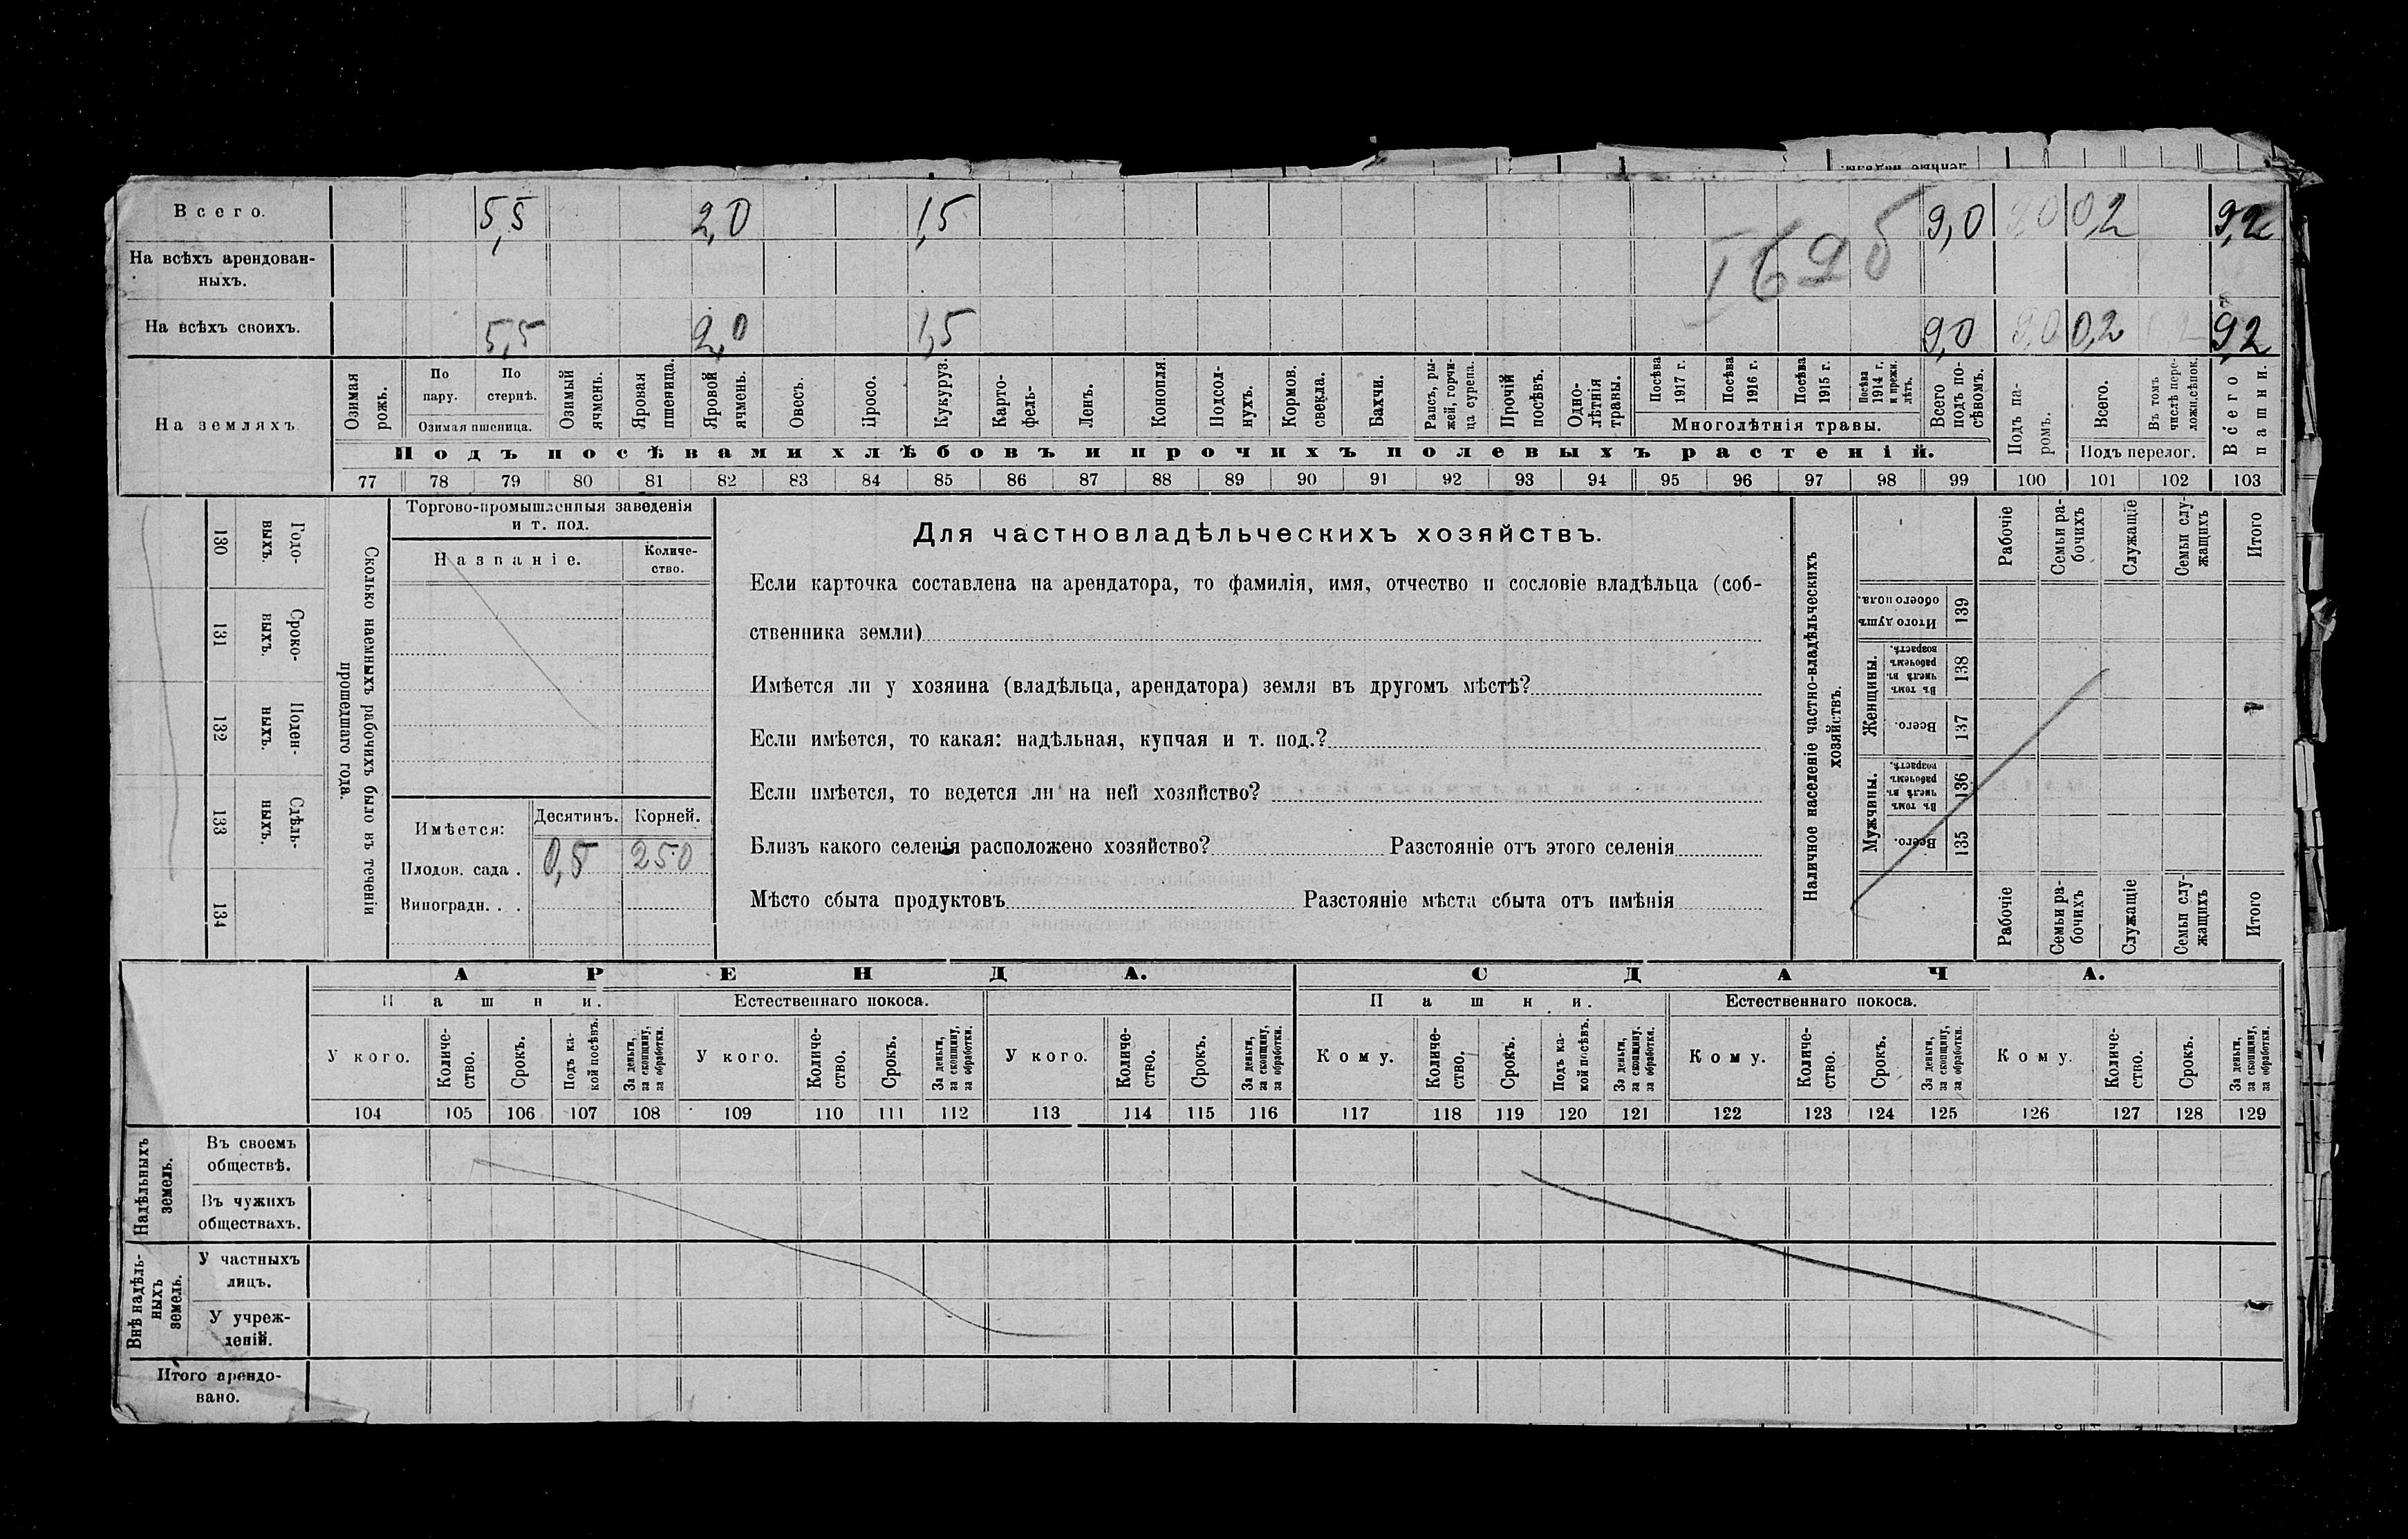 Всего. 5,5 2,0 1,5 9,0 0,2 9,2
На всѣхъ арендован-
ныхъ.
На всѣхъ своихъ. 5,5 2,0 1,5 9,0 0,2 9,2
На земляхъ
Озимая рожь.
По пару.
По стернѣ.
Озимая пшеница.
Озимый ячмень.
Яровая пшеница.
Яровой ячмень.
Овесъ.
Просо.
Кукуруз.
Карто-
фель.
Ленъ.
Конопля.
Подсол-
нухъ.
Кормов.
свекла.
Бахчи.
Рапсъ, ры-
жей, горчи-
ца сурепа.
Прочій посѣвъ.
Одно-
лѣтнія травы.
Посѣва 1917 г.
Посѣва 1916 г.
Посѣва 1915 г.
Посѣва 1914 г. и прежн. лѣтъ.
Многолѣтнія травы.
Всего подъ по-
сѣвомъ.
Подъ па-
ромъ.
Всего.
Въ томъ числѣ пере-
ложн. сѣнок.
Подъ перелог.
Всего пашни.
Подъ посѣвами хлѣбовъ и прочихъ полевыхъ растеній.
77 78 79 80 81 82 83 84 85 86 87 88 89 90 91 92 93 94 95 96 97 98 99 100 101 102 103
Сколько наемныхъ рабочихъ было въ теченіи
прошедшаго года.
Годо-
выхъ.
130
Сроко-
выхъ.
131
Поден-
ныхъ.
132
Сдѣль-
ныхъ.
133
134
Торгово-промышленныя заведенія
и т. под.
Названіе.
Количе-
ство.
Имѣется:
Десятинъ. Корней.
Плодов. сада . 0,5 250
Виноградн. . .
Для частновладѣльческихъ хозяйствъ.
Если карточка составлена на арендатора, то фамилія, имя, отчество и сословіе владѣльца (соб-
ственника земли)
Имѣется ли у хозяина (владѣльца, арендатора) земля въ другомъ мѣстѣ?
Если имѣется, то какая: надѣльная, купчая и т. под.?
Если имѣется, то ведется ли на ней хозяйство?
Близъ какого селенія расположено хозяйство? Разстояніе отъ этого селенія
Мѣсто сбыта продуктовъ Разстояніе мѣста сбыта отъ имѣнія
Наличное населеніе частно-владѣльческихъ
хозяйствъ.
Рабочіе
Семьи ра-
бочихъ
Служащіе
Семьи слу-
жащихъ
Итого
Итого душъ
обоего пола.
139
Женщины.
Въ томъ числѣ въ рабочемъ возрастѣ.
138
Всего.
137
Мужчины.
Въ томъ числѣ въ рабочемъ возрастѣ.
136
Всего.
135
Рабочіе
Семьи ра-
бочихъ
Служащіе
Семьи слу-
жащихъ
Итого
АРЕНДА. СДАЧА.
Пашни. Естественнаго покоса. Пашни. Естественнаго покоса.
У кого.
Количе-
ство.
Срокъ.
Подъ ка-
кой посѣвъ.
За деньги,
за скопщину,
за обработки.
У кого.
Количе-
ство.
Срокъ.
За деньги,
за скопщину,
за обработки.
У кого.
Количе-
ство.
Срокъ.
За деньги,
за скопщину,
за обработки.
Кому.
Количе-
ство.
Срокъ.
Подъ ка-
кой посѣвъ.
За деньги,
за скопщину,
за обработки.
Кому.
Количе-
ство.
Срокъ.
За деньги,
за скопщину,
за обработки.
Кому.
Количе-
ство.
Срокъ.
За деньги,
за скопщину,
за обработки.
104 105 106 107 108 109 110 111 112 113 114 115 116 117 118 119 120 121 122 123 124 125 126 127 128 129
Надѣльныхъ
земель.
Въ своемъ
обществѣ.
Въ чужихъ
обществахъ.
Внѣ надѣль-
ныхъ
земель.
У частныхъ
лицъ.
У учреж-
деній.
Итого арендо-
вано.